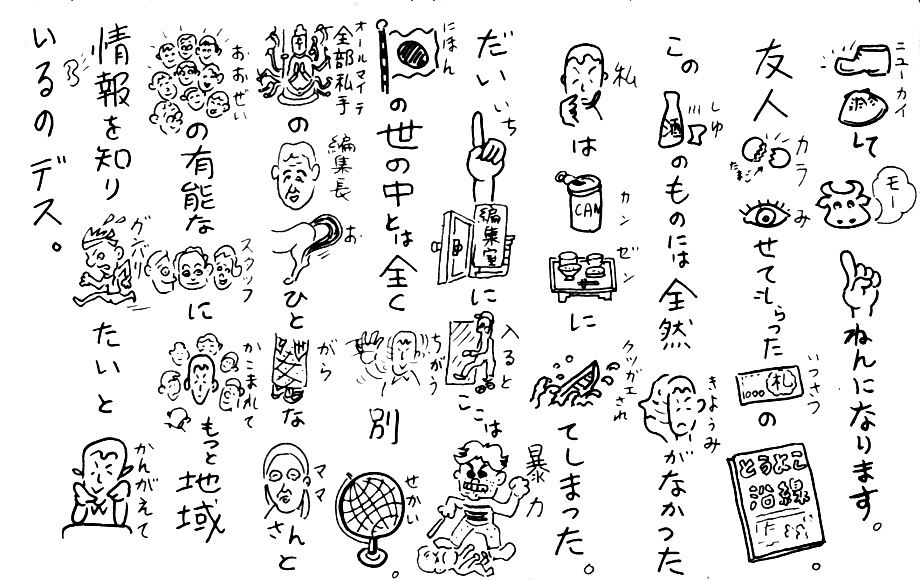 ニューカイして モー ねんになります。
友人カラ たまご みせてもらった いっさつ 1000 札 の とうよこ沿線。
この しゅ 酒 のものには全然 きょうみ がなかった
私 は カン CAN ゼン に クツガエされ てしまった。
だいいち 編集室 に 入ると ここは 暴力
にほん の世の中とは全く ちがう 別 せかい。
オールマイティ 全部私手 の 編集長 お ひと がら な ママ さんと
おおぜい の有能な スタッフ に かこまれて もっと地域
情報を知り ガンバリ たいと かんがえて
いるのデス。